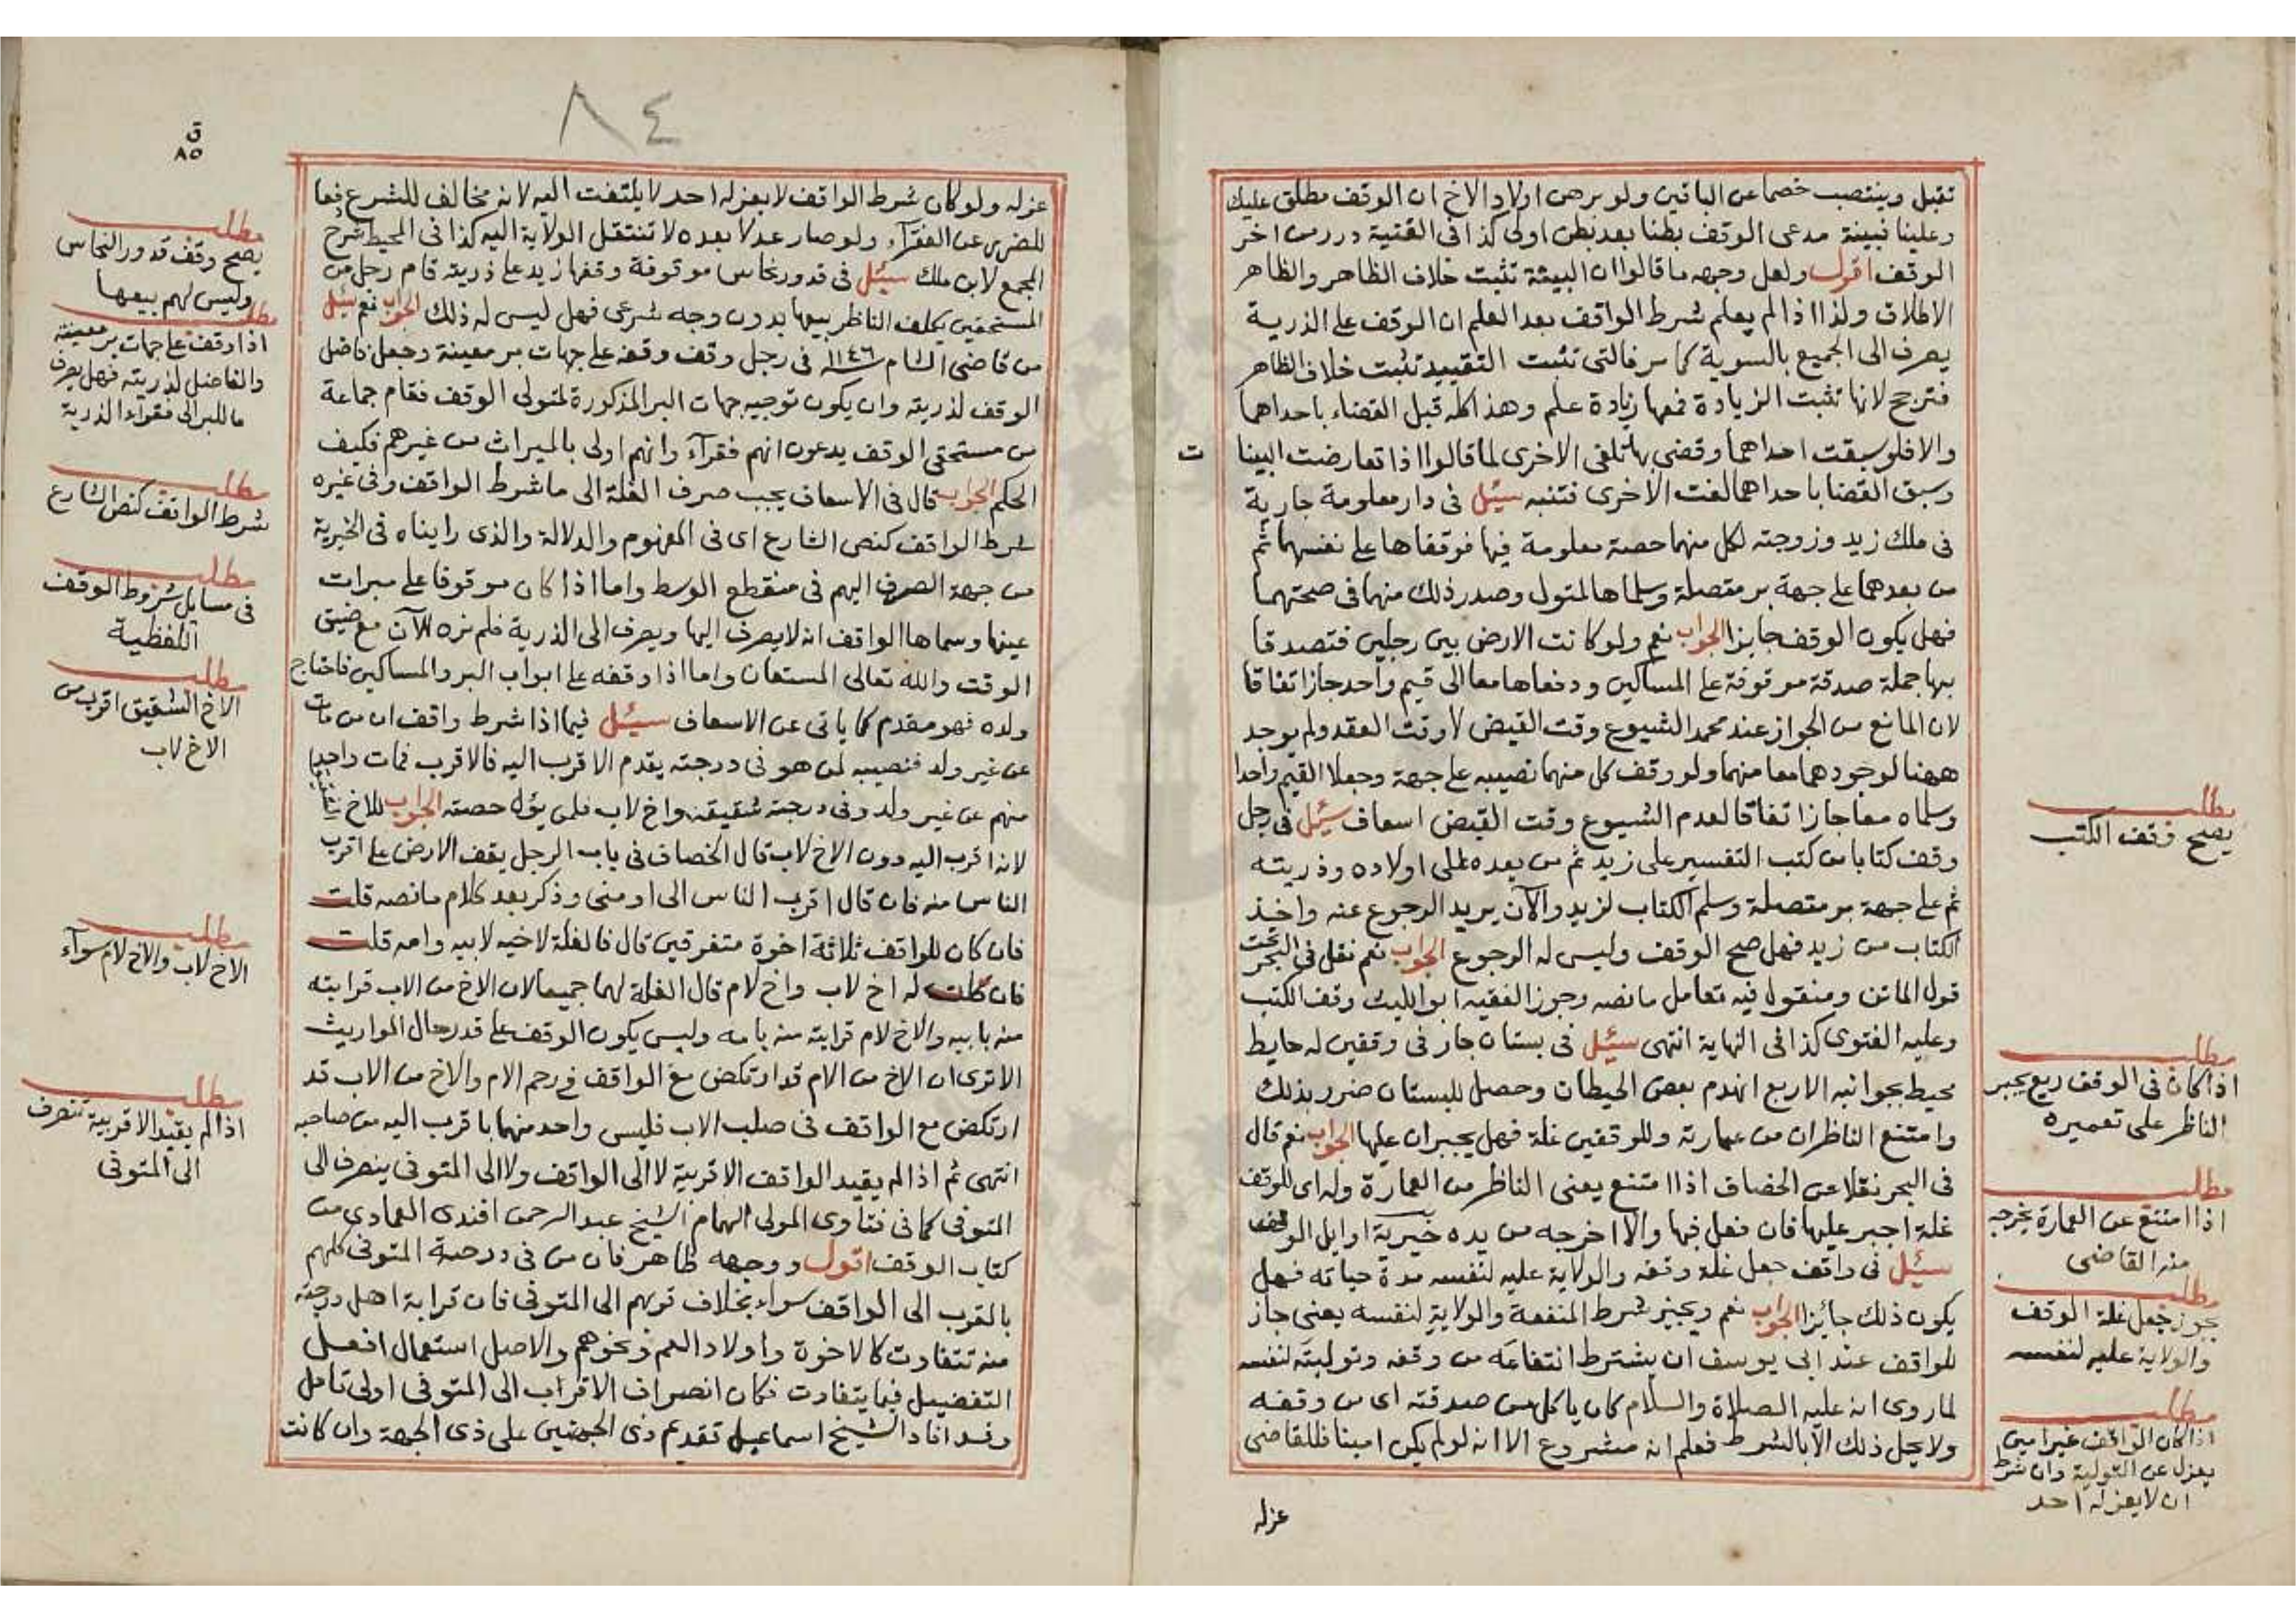 تقبل وينتصب خصما عن الباقين ولو برهن اولاد الاخ ان الوقف مطلق عليك
وعلينا فبينة مدعى الوقف بطنا بعد بطن اولى كذا فى القنية درر من اخر
الوقف اقول ولعل وجهه ما قالوا ان البينة تثبت خلاف الظاهر والظاهر
الاطلاق ولذا اذا لم يعلم شرط الواقف بعد العلم ان الوقف على الذرية
يصرف الى الجميع بالسوية كما مر فالتى تثبت التقييد تثبت خلاف الظاهر
فترجح لانها تثبت الزيادة فمعها زيادة علم وهذا كله قبل القضاء باحداهما
والا فلو سبقت احداهما وقضى بها تلغى الاخرى لما قالوا اذا تعارضت البينا
ت
وسبق القضا باحداهما لغت الاخرى فتنبه سئل فى دار معلومة جارية
فى ملك زيد وزوجته لكل منهما حصة معلومة فيها فوقفاها على نفسهما ثم
من بعدهما على جهة بر متصلة وسلماها لمتول وصدر ذلك منهما فى صحتهما
فهل يكون الوقف جايزا الجواب نعم ولو كانت الارض بين رجلين فتصدقا
بها جملة صدقة موقوفة على المساكين ودفعاها معا الى قيم واحد جاز اتفاقا
لان المانع من الجواز عند محمد الشيوع وقت القبض لا وقت العقد ولم يوجد
ههنا لوجودهما معا منهما ولو وقف كل منهما نصيبه على جهة وجعلا القيم واحدا
وسلماه معا جاز اتفاقا لعدم الشيوع وقت القبض اسعاف سئل فى رجل
وقف كتابا من كتب التفسير على زيد ثم من بعده على اولاده وذريته
ثم على جهة بر متصلة وسلم الكتاب لزيد والآن يريد الرجوع عنه واخذ
الكتاب من زيد فهل صح الوقف وليس له الرجوع الجواب نعم نقل فى البحر تحت
قول الماتن ومنقول فيه تعامل ما نصه وجوز الفقيه ابو الليث وقف الكتب
وعليه الفتوى كذا فى النهاية انتهى سئل فى بستان جار فى وقفين له حايط
محيط بجوانبه الاربع انهدم بعض الحيطان وحصل للبستان ضرر بذلك
وامتنع الناظران من عمارته وللوقفين غلة فهل يجبران عليها الجواب نعم قال
فى البحر نقلا عن الخصاف اذا امتنع يعنى الناظر من العمارة وله اى للوقف
غلة اجبر عليها فان فعل فبها والا اخرجه من يده خيرية اوايل الوقف
سئل فى واقف جعل غلة وقفه والولاية عليه لنفسه مدة حياته فهل
يكون ذلك جائزا الجواب نعم ويجيز شرط المنفعة والولاية لنفسه يعنى جاز
للواقف عند ابى يوسف ان يشترط انتفاعه من وقفه وتوليته لنفسه
لما روى انه عليه الصلاة والسلام كان ياكل من صدقته اى من وقفه
ولا يحل ذلك الا بالشرط فعلم انه مشروع الا انه لو لم يكن امينا فللقاضى
عزله
مطلب
يصح وقف الكتب
مطلب
اذا كان فى الوقف ريع يجبر
الناظر على تعميره
مطلب
اذا امتنع عن العمارة يخرجه
منه القاضى
مطلب
يجوز جعل غلة الوقف
والولاية عليه لنفسه
مطلب
اذا كان الواقف غير امين
يعزل عن التولية وان شرط
ان لا يعزله احد
٨٤
ق
٨٥
عزله ولو كان شرط الواقف لا يعزله احد لا يلتفت اليه لانه مخالف للشرع فعا
للضرر عن الفقرآء ولو صار عدلا بعده لا تنتقل الولاية اليه كذا فى المحيط شرح
المجمع لابن ملك سئل فى قدور نحاس موقوفة وقفها زيد على ذريته قام رجل من
المستحقين يكلف الناظر بيعها بدون وجه شرعى فهل ليس له ذلك الجواب نعم سئل
من قاضى الشام ١١٤٦ فى رجل وقف وقفه على جهات بر معينة وجعل فاضل
الوقف لذريته وان يكون توجيه جهات البر المذكورة لمتولى الوقف فقام جماعة
من مستحقى الوقف يدعون انهم فقرآء وانهم اولى بالميراث من غيرهم فكيف
الحكم الجواب قال فى الاسعاف يجب صرف الغلة الى ما شرط الواقف وفى غيره
شرط الواقف كنص الشارع اى فى المفهوم والدلالة والذى رايناه فى الخيرية
من جهة الصرف اليهم فى منقطع الوسط واما اذا كان موقوفا على مبرات
عينها وسماها الواقف انه لا يصرف اليها ويصرف الى الذرية فلم نره الآن مع ضيق
الوقت والله تعالى المستعان واما اذا وقفه على ابواب البر والمساكين فاحتاج
ولده فهو مقدم كما ياتى عن الاسعاف سئل فيما اذا شرط واقف ان من مات
عن غير ولد فنصيبه لمن هو فى درجته يقدم الاقرب اليه فالاقرب فمات واحد
منهم عن غير ولد وفى درجته شقيقه واخ لاب فلمن يؤل حصته الجواب للاخ الشقيق
لانه اقرب اليه دون الاخ لاب قال الخصاف فى باب الرجل يقف الارض على اقرب
الناس منه فان قال اقرب الناس الى او منى وذكر بعد كلام ما نصه قلت
فان كان للواقف ثلاثة اخوة متفرقين قال فالغلة لاخيه لابيه وامه قلت
فان كان له اخ لاب واخ لام قال الغلة لهما جميعا لان الاخ من الاب قرابته
منه بابيه والاخ لام قرابته منه بامه وليس يكون الوقف على قدر حال المواريث
الا ترى ان الاخ من الام قد ارتكض مع الواقف فى رحم الام والاخ من الاب قد
ارتكض مع الواقف فى صلب الاب فليس واحد منهما باقرب اليه من صاحبه
انتهى ثم اذا لم يقيد الواقف الاقربية لا الى الواقف ولا الى المتوفى ينصرف الى
المتوفى كما فى فتاوى المولى الهمام الشيخ عبد الرحمن افندى العمادى من
كتاب الوقف اقول ووجهه ظاهر فان من فى درجة المتوفى كلهم
بالقرب الى الواقف سواء بخلاف قربهم الى المتوفى فان قرابة اهل درجته
منه تتفاوت كالاخوة واولاد العم ونحوهم والاصل استعمال افعل
التفضيل فيما يتفاوت فكان انصراف الاقراب الى المتوفى اولى تامل
وقد افاد الشيخ اسماعيل تقديم ذى الجهتين على ذى الجهة وان كانت
مطلب
يصح وقف قدور النحاس
وليس لهم بيعها
مطلب
اذا وقف على جهات بر معينة
والفاضل لذريته فهل يصرف
ما للبر الى فقراء الذرية
مطلب
شرط الواقف كنص الشارع
مطلب
فى مسايل شروط الوقف
اللفظية
مطلب
الاخ الشقيق اقرب من
الاخ لاب
مطلب
الاخ لاب والاخ لام سوآء
مطلب
اذا لم يقيد الاقربية تنصرف
الى المتوفى